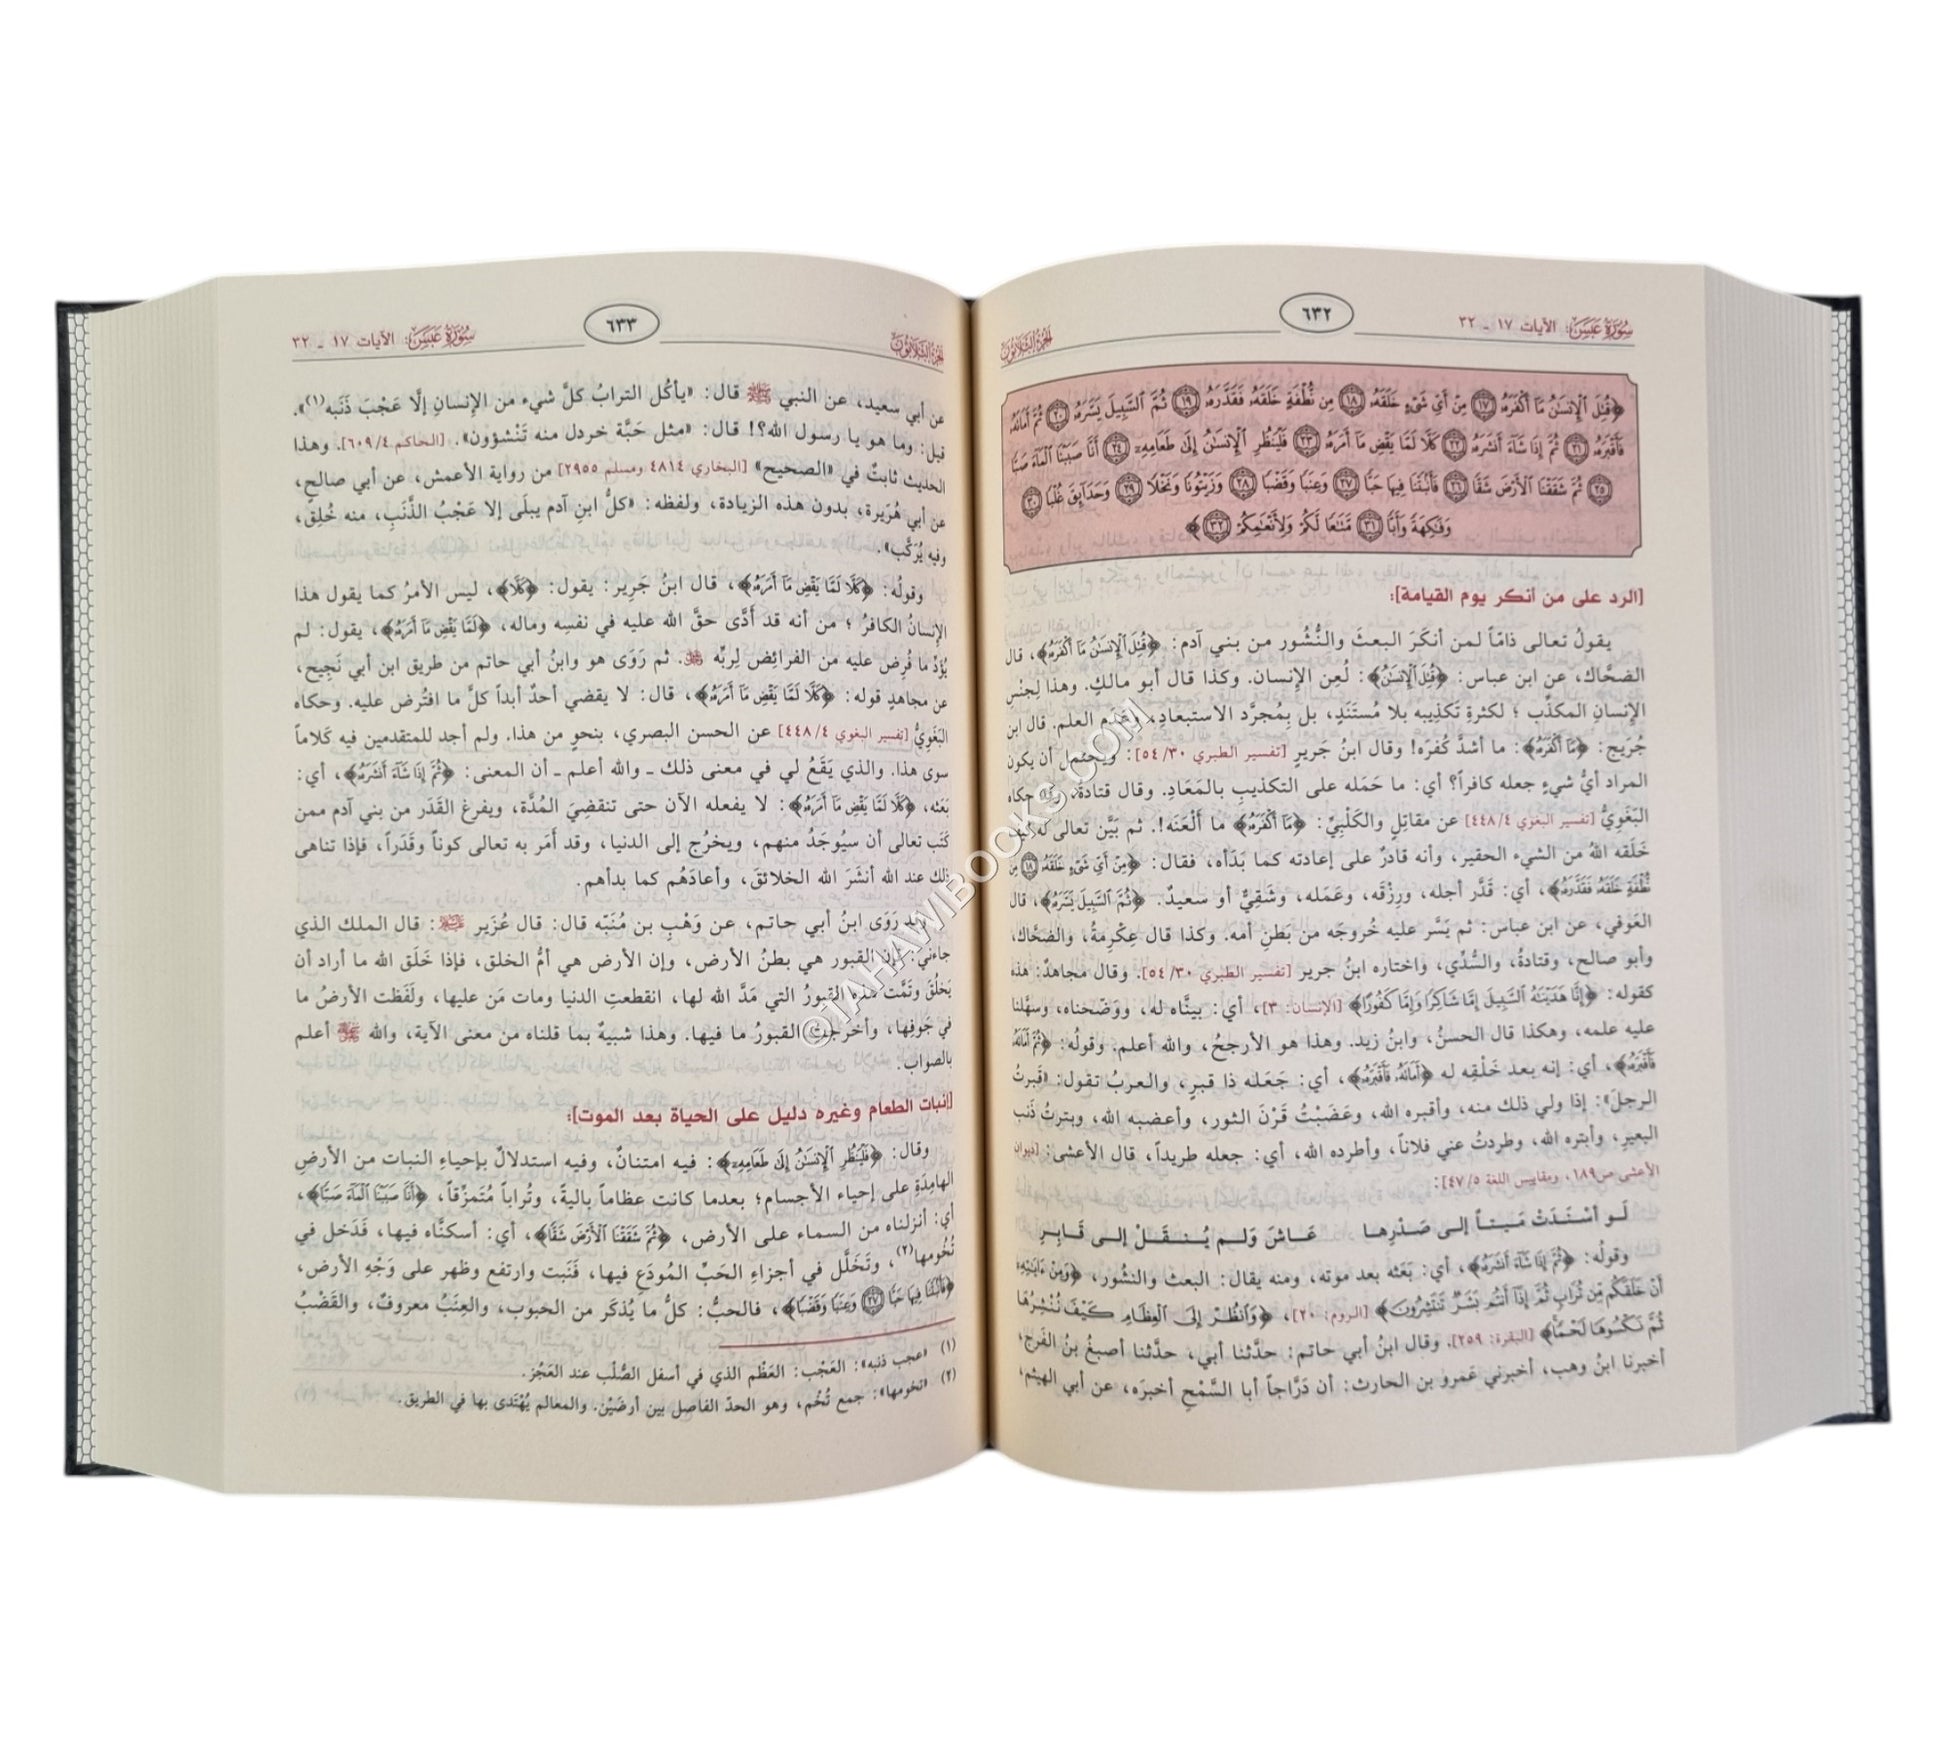 سُورَةُ عَبَسَ: الآيات ١٧ - ٣٢
٦٣٢
الجزء الثلاثون
﴿قُتِلَ ٱلْإِنسَٰنُ مَآ أَكْفَرَهُۥ ١٧ مِنْ أَيِّ شَىْءٍ خَلَقَهُۥ ١٨ مِن نُّطْفَةٍ خَلَقَهُۥ فَقَدَّرَهُۥ ١٩ ثُمَّ ٱلسَّبِيلَ يَسَّرَهُۥ ٢٠ ثُمَّ أَمَاتَهُۥ
فَأَقْبَرَهُۥ ٢١ ثُمَّ إِذَا شَآءَ أَنشَرَهُۥ ٢٢ كَلَّا لَمَّا يَقْضِ مَآ أَمَرَهُۥ ٢٣ فَلْيَنظُرِ ٱلْإِنسَٰنُ إِلَىٰ طَعَامِهِۦٓ ٢٤ أَنَّا صَبَبْنَا ٱلْمَآءَ صَبًّا
٢٥ ثُمَّ شَقَقْنَا ٱلْأَرْضَ شَقًّا ٢٦ فَأَنۢبَتْنَا فِيهَا حَبًّا ٢٧ وَعِنَبًا وَقَضْبًا ٢٨ وَزَيْتُونًا وَنَخْلًا ٢٩ وَحَدَآئِقَ غُلْبًا ٣٠
وَفَٰكِهَةً وَأَبًّا ٣١ مَّتَٰعًا لَّكُمْ وَلِأَنْعَٰمِكُمْ ٣٢﴾
[الرد على من أنكر يوم القيامة]:
يقولُ تعالى ذامّاً لمن أنكَرَ البعثَ والنُّشُور من بني آدم: ﴿قُتِلَ ٱلْإِنسَٰنُ مَآ أَكْفَرَهُۥ﴾، قال
الضحَّاك، عن ابن عباس: ﴿قُتِلَ ٱلْإِنسَٰنُ﴾: لُعِن الإنسان. وكذا قال أبو مالكٍ. وهذا لِجنْسِ
الإنسانِ المكذِّب؛ لكثرةِ تكذِيبه بلا مُستَندٍ، بل بِمُجرَّد الاستبعادِ، وعَدَم العلم. قال ابن
جُرَيج: ﴿مَآ أَكْفَرَهُۥ﴾: ما أشدَّ كُفرَه! وقال ابنُ جَريرٍ [تفسير الطبري ٥٤/٣٠]: ويحتمل أن يكون
المراد أيُّ شيءٍ جعله كافراً؟ أي: ما حَمَله على التكذيبِ بالمَعَادِ. وقال قتادةُ، وقد حكاه
البَغَوِيُّ [تفسير البغوي ٤٤٨/٤] عن مقاتِلٍ والكَلْبِيِّ: ﴿مَآ أَكْفَرَهُۥ﴾ ما أَلْعَنَه!. ثم بَيَّن تعالى له كيف
خَلَقه اللهُ من الشيء الحقير، وأنه قادرٌ على إعادته كما بَدَأه، فقال: ﴿مِنْ أَيِّ شَىْءٍ خَلَقَهُۥ ١٨ مِن
نُّطْفَةٍ خَلَقَهُۥ فَقَدَّرَهُۥ﴾، أي: قَدَّر أجله، ورِزْقَه، وعَمَله، وشَقِيٌّ أو سعيدٌ. ﴿ثُمَّ ٱلسَّبِيلَ يَسَّرَهُۥ﴾، قال
العَوفي، عن ابن عباس: ثم يَسَّر عليه خُروجَه من بَطنِ أمه. وكذا قال عِكْرِمةُ، والضحَّاك،
وأبو صالح، وقتادةُ، والسُّدِّي، واختاره ابنُ جرير [تفسير الطبري ٥٤/٣٠]. وقال مجاهدٌ: هذه
كقوله: ﴿إِنَّا هَدَيْنَٰهُ ٱلسَّبِيلَ إِمَّا شَاكِرًا وَإِمَّا كَفُورًا﴾ [الإنسان: ٣]، أي: بيَّناه له، ووَضّحناه، وسهَّلنا
عليه علمه، وهكذا قال الحسنُ، وابنُ زيد. وهذا هو الأرجحُ، والله أعلم. وقولُه: ﴿ثُمَّ أَمَاتَهُۥ
فَأَقْبَرَهُۥ﴾، أي: إنه بعد خَلْقِه له ﴿أَمَاتَهُۥ فَأَقْبَرَهُۥ﴾، أي: جَعَله ذا قبرٍ، والعربُ تقول: «قَبرتُ
الرجلَ»: إذا ولي ذلك منه، وأقبره الله، وعَضَبْتُ قَرْنَ الثور، وأعضبه الله، وبترتُ ذَنب
البعيرِ، وأبتره الله، وطردتُ عني فلاناً، وأطرده الله، أي: جعله طريداً، قال الأعشى: [ديوان
الأعشى ص١٨٩، ومقاييس اللغة ٤٧/٥]:
لَـو أسْـنَـدَتْ مَـيـتـاً إلى صَـدْرِهـا عَـاشَ وَلـم يُـنـقَـلْ إلى قَـابِـرِ
وقولُه: ﴿ثُمَّ إِذَا شَآءَ أَنشَرَهُۥ﴾، أي: بَعَثه بعد موته، ومنه يقال: البعث والنشور، ﴿وَمِنْ ءَايَٰتِهِۦٓ
أَنْ خَلَقَكُم مِّن تُرَابٍ ثُمَّ إِذَآ أَنتُم بَشَرٌ تَنتَشِرُونَ﴾ [الروم: ٢٠]، ﴿وَٱنظُرْ إِلَى ٱلْعِظَامِ كَيْفَ نُنشِزُهَا
ثُمَّ نَكْسُوهَا لَحْمًا﴾ [البقرة: ٢٥٩]. وقال ابنُ أبي حاتم: حدَّثنا أبي، حدَّثنا أصبغُ بنُ الفَرج،
أخبرنا ابنُ وهب، أخبرني عَمرو بن الحارث: أن دَرَّاجاً أبا السَّمْحِ أخبرَه، عن أبي الهيثم،
الجزء الثلاثون
٦٣٣
سُورَةُ عَبَسَ: الآيات ١٧ - ٣٢
عن أبي سعيد، عن النبي ﷺ قال: «يأكُل الترابُ كلَّ شيء من الإنسانِ إلَّا عَجْبَ ذَنَبه(١)».
قيل: وما هو يا رسول الله؟! قال: «مثل حَبَّة خردل منه تَنْشؤون». [الحاكم ٦٠٩/٤]. وهذا
الحديث ثابتٌ في «الصحيح» [البخاري ٤٨١٤ ومسلم ٢٩٥٥] من رواية الأعمش، عن أبي صالحٍ،
عن أبي هُرَيرة، بدون هذه الزيادة، ولفظه: «كلُّ ابنِ آدم يبلَى إلا عَجْبُ الذَّنَبِ، منه خُلِقَ،
وفيه يُرَكَّب».
وقولُه: ﴿كَلَّا لَمَّا يَقْضِ مَآ أَمَرَهُۥ﴾، قال ابنُ جَرير: يقول: ﴿كَلَّا﴾، ليس الأمرُ كما يقول هذا
الإنسانُ الكافرُ؛ من أنه قد أدَّى حقَّ الله عليه في نفسِه وماله، ﴿لَمَّا يَقْضِ مَآ أَمَرَهُۥ﴾، يقول: لم
يُؤدِّ ما فُرِض عليه من الفرائِض لِربِّه ﷻ. ثم رَوَى هو وابنُ أبي حاتم من طريق ابن أبي نَجِيح،
عن مجاهدٍ قوله: ﴿كَلَّا لَمَّا يَقْضِ مَآ أَمَرَهُۥ﴾، قال: لا يقضي أحدٌ أبداً كلَّ ما افتُرض عليه. وحكاه
البَغَويُّ [تفسير البغوي ٤٤٨/٤] عن الحسن البصري، بنحوٍ من هذا. ولم أجد للمتقدمين فيه كَلاماً
سوى هذا. والذي يَقَعُ لي في معنى ذلك ـ والله أعلم ـ أن المعنى: ﴿ثُمَّ إِذَا شَآءَ أَنشَرَهُۥ﴾، أي:
بَعَثه، ﴿كَلَّا لَمَّا يَقْضِ مَآ أَمَرَهُۥ﴾: لا يفعله الآن حتى تنقضِيَ المُدَّة، ويفرغ القَدَر من بني آدم ممن
كَتَب تعالى أن سيُوجَدُ منهم، ويخرُج إلى الدنيا، وقد أمَر به تعالى كوناً وقَدَراً، فإذا تناهى
ذلك عند الله أنشَرَ الله الخلائقَ، وأعادَهُم كما بدأهم.
وقد رَوَى ابنُ أبي حاتم، عن وَهْبِ بن مُنَبّه قال: قال عُزَير ﵇: قال الملك الذي
جاءني: فإن القبور هي بطنُ الأرض، وإن الأرض هي أمُّ الخلق، فإذا خَلَق الله ما أراد أن
يَخلُقَ وتَمَّت هذه القبورُ التي مَدَّ الله لها، انقطعتِ الدنيا ومات مَن عليها، ولَفَظت الأرضُ ما
في جَوفِها، وأخرجتْ القبورُ ما فيها. وهذا شبيهٌ بما قلناه من معنى الآية، والله ﷻ أعلم
بالصواب.
[إنبات الطعام وغيره دليل على الحياة بعد الموت]:
وقال: ﴿فَلْيَنظُرِ ٱلْإِنسَٰنُ إِلَىٰ طَعَامِهِۦٓ﴾: فيه امتنانٌ، وفيه استدلالٌ بإحياءِ النبات من الأرضِ
الهامِدَةِ على إحياء الأجسام؛ بعدما كانت عظاماً باليةً، وتُراباً مُتمزِّقاً، ﴿أَنَّا صَبَبْنَا ٱلْمَآءَ صَبًّا﴾،
أي: أنزلناه من السماء على الأرض، ﴿ثُمَّ شَقَقْنَا ٱلْأَرْضَ شَقًّا﴾، أي: أسكنَّاه فيها، فَدَخل في
تُخُومها(٢)، وتَخَلَّل في أجزاءِ الحَبِّ المُودَعِ فيها، فَنَبت وارتفع وظهر على وَجْهِ الأرض،
﴿فَأَنۢبَتْنَا فِيهَا حَبًّا ٢٧ وَعِنَبًا وَقَضْبًا﴾، فالحبُّ: كلُّ ما يُذكَر من الحبوب، والعِنَبُ معروفٌ، والقَضْبُ
(١) «عجب ذنبه»: العَجْب: العَظْم الذي في أسفل الصُّلْب عند العَجُز.
(٢) «تخومها»: جمع تُخُم، وهو الحدّ الفاصل بين أرضَيْن. والمعالم يُهْتَدى بها في الطريق.
©IAHAWIBOOKS.COM